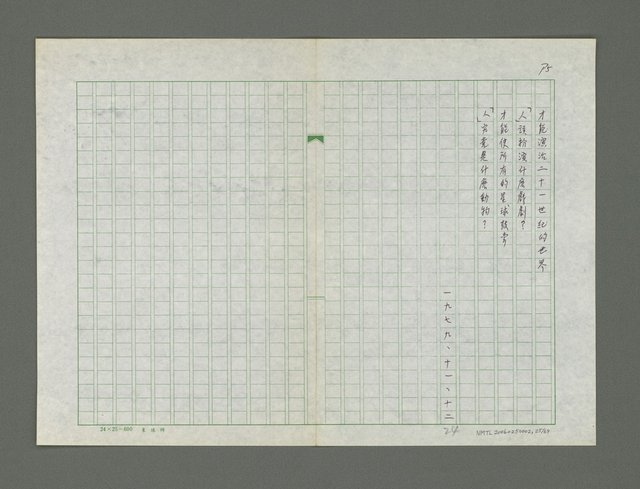 P5
才能演活二十一世紀的世界
「人」該扮演什麼戲劇?
才能使所有的星球鼓掌
「人」究竟是什麼動物?
一九七九、十一、十二
24
NMTL 20060250002, 05/69
24×25=600